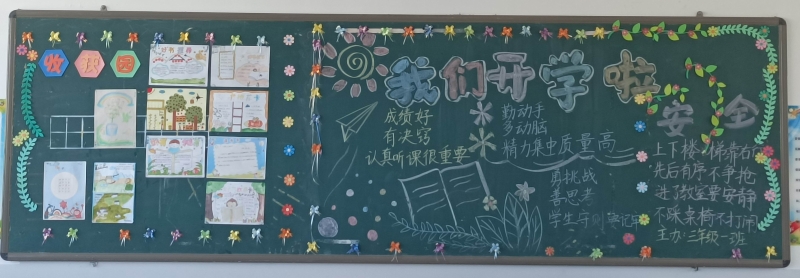 收获园
我们开学啦
成绩好
有决窍
认真听课很重要
勤动手
多动脑
精力集中质量高
勇挑战
善思考
学生守则要记牢
安全
上下楼梯靠右
先后有序不争抢
进了教室要安静
不咪桌椅不打闹
主办:三年级一班